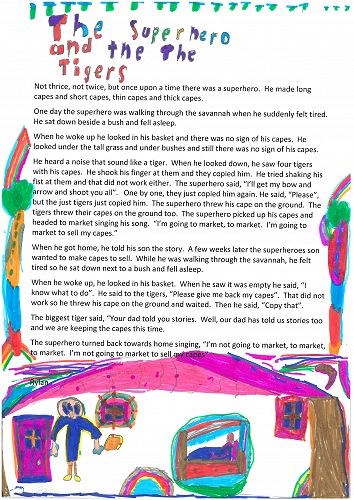 The Superhero
and the The
Tigers
Not thrice, not twice, but once upon a time there was a superhero.  He made long
capes and short capes, thin capes and thick capes.
One day the superhero was walking through the savannah when he suddenly felt tired.
He sat down beside a bush and fell asleep.
When he woke up he looked in his basket and there was no sign of his capes.  He
looked under the tall grass and under bushes and still there was no sign of his capes.
He heard a noise that sound like a tiger.  When he looked down, he saw four tigers
with his capes.  He shook his finger at them and they copied him.  He tried shaking his
fist at them and that did not work either.  The superhero said, "I'll get my bow and
arrow and shoot you all".  One by one, they just copied him again. He said, "Please",
but the just tigers just copied him.  The superhero threw his cape on the ground.  The
tigers threw their capes on the ground too.  The superhero picked up his capes and
headed to market singing his song.  "I'm going to market, to market.  I'm going to
market to sell my capes."
When he got home, he told his son the story.  A few weeks later the superheroes son
wanted to make capes to sell.  While he was walking through the savannah, he felt
tired so he sat down next to a bush and fell asleep.
When he woke up, he looked in his basket.  When he saw it was empty he said, "I
know what to do".  He said to the tigers, "Please give me back my capes".  That did not
work so he threw his cape on the ground and waited.  Then he said, "Copy that".
The biggest tiger said, "Your dad told you stories.  Well, our dad has told us stories too
and we are keeping the capes this time.
The superhero turned back towards home singing, "I'm not going to market, to market,
to market.  I'm not going to market to sell my capes"
Rylan